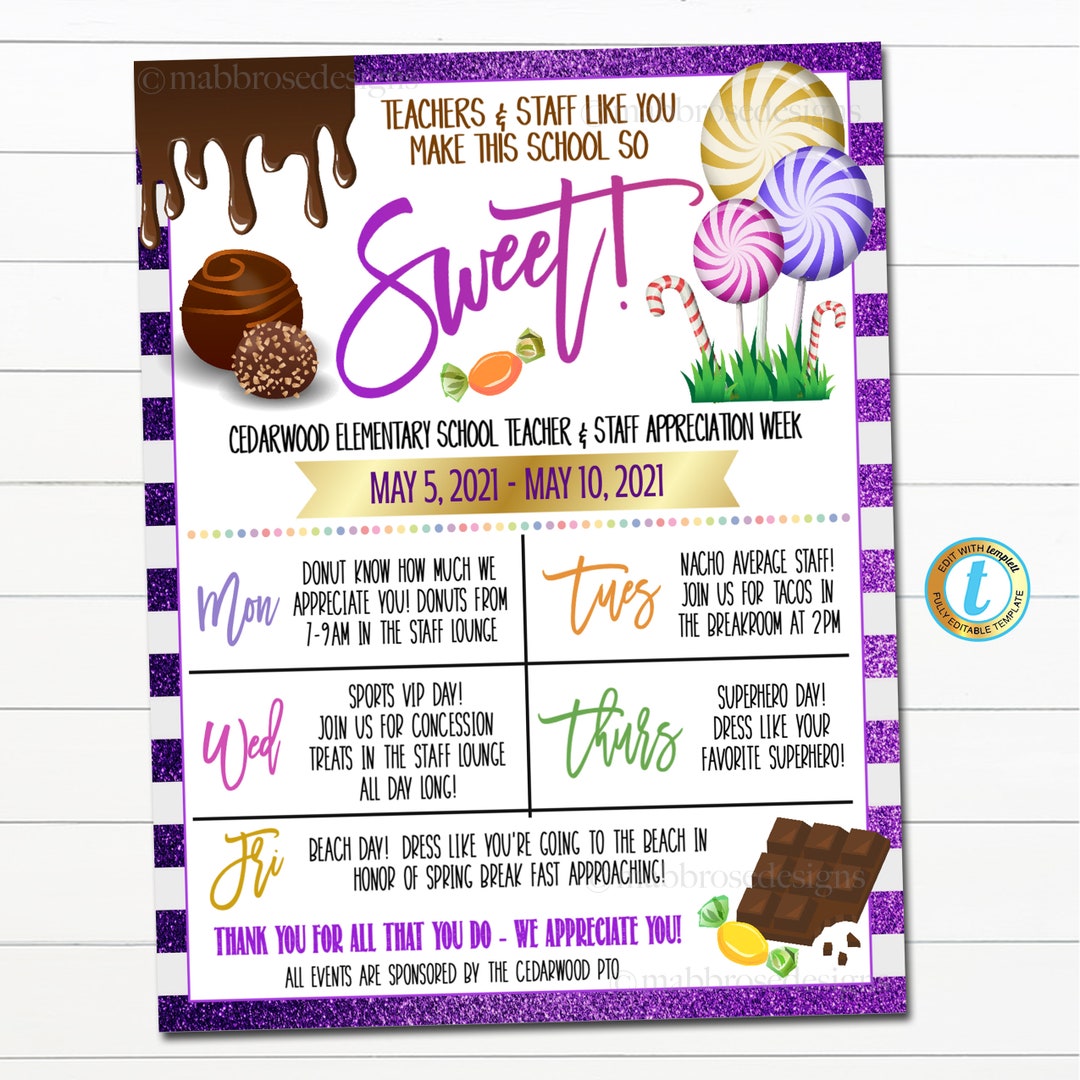 ©mabbrosedesigns
TEACHERS & STAFF LIKE YOU
MAKE THIS SCHOOL SO
Sweet!
CEDARWOOD ELEMENTARY SCHOOL TEACHER & STAFF APPRECIATION WEEK
MAY 5, 2021 - MAY 10, 2021
Mon
DONUT KNOW HOW MUCH WE
APPRECIATE YOU! DONUTS FROM
7-9AM IN THE STAFF LOUNGE
Tues
NACHO AVERAGE STAFF!
JOIN US FOR TACOS IN
THE BREAKROOM AT 2PM
Wed
SPORTS VIP DAY!
JOIN US FOR CONCESSION
TREATS IN THE STAFF LOUNGE
ALL DAY LONG!
Thurs
SUPERHERO DAY!
DRESS LIKE YOUR
FAVORITE SUPERHERO!
Fri
BEACH DAY! DRESS LIKE YOU'RE GOING TO THE BEACH IN
HONOR OF SPRING BREAK FAST APPROACHING!
©mabbrosedesigns
THANK YOU FOR ALL THAT YOU DO - WE APPRECIATE YOU!
ALL EVENTS ARE SPONSORED BY THE CEDARWOOD PTO
©mabbrosedesigns
EDIT WITH templett
t
FULLY EDITABLE TEMPLATE